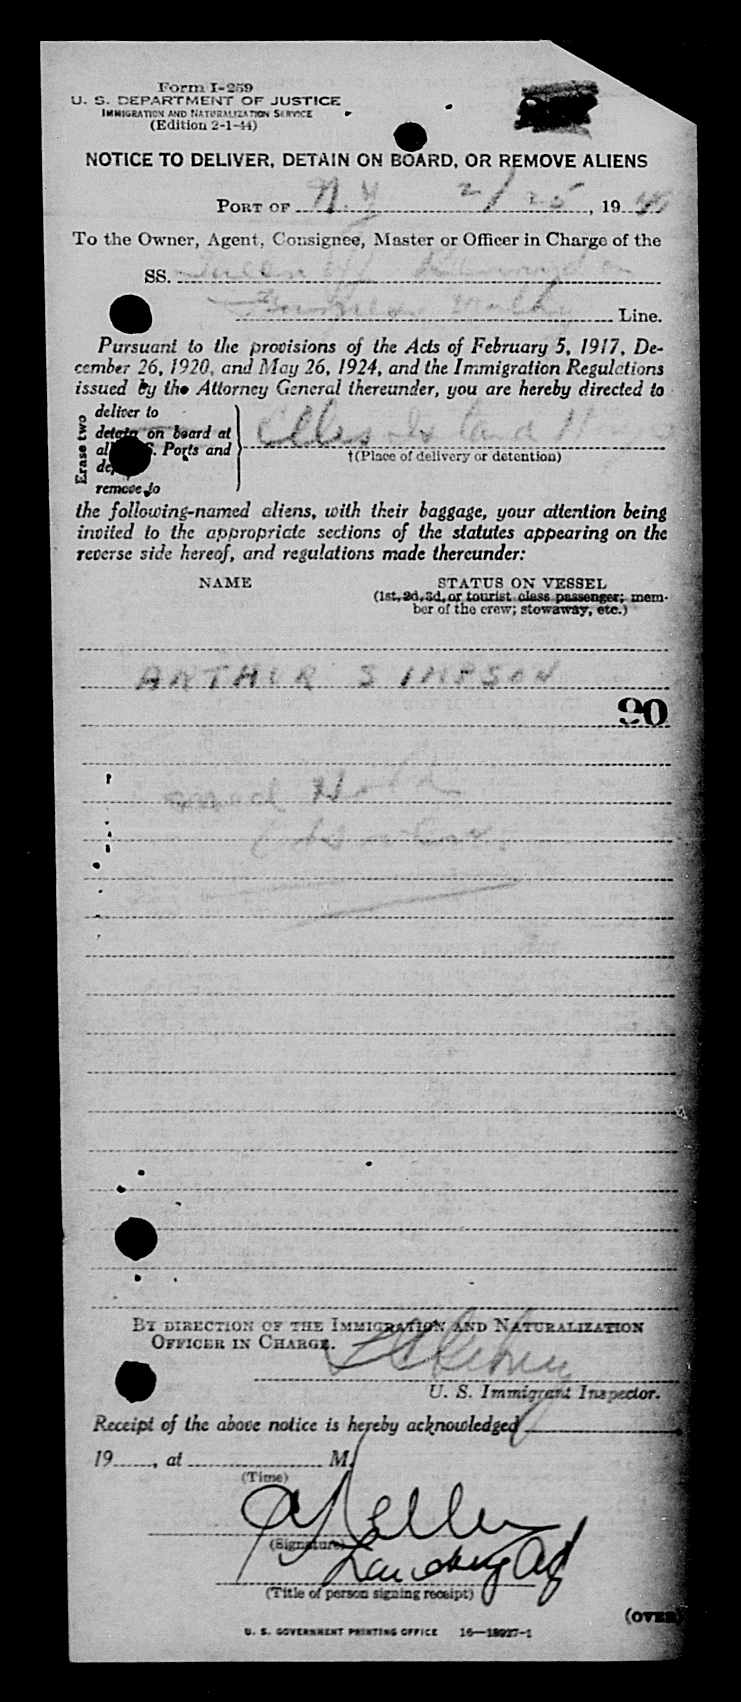 Form I-259
U. S. DEPARTMENT OF JUSTICE
IMMIGRATION AND NATURALIZATION SERVICE
(Edition 2-1-44)
NOTICE TO DELIVER, DETAIN ON BOARD, OR REMOVE ALIENS
PORT OF N.Y 2/25, 19
To the Owner, Agent, Consignee, Master or Officer in Charge of the
SS. Queen of Bermuda
Furness Line.
Pursuant to the provisions of the Acts of February 5, 1917, De-
cember 26, 1920, and May 26, 1924, and the Immigration Regulations
issued by the Attorney General thereunder, you are hereby directed to
Erase two
deliver to
detain on board at
S. Ports and
remove to
Ellis Island
†(Place of delivery or detention)
the following-named aliens, with their baggage, your attention being
invited to the appropriate sections of the statutes appearing on the
reverse side hereof, and regulations made thereunder:
NAME STATUS ON VESSEL
(1st, 2d, 3d, or tourist class passenger; mem-
ber of the crew; stowaway, etc.)
ARTHUR SIMPSON
90
med Hold
BY DIRECTION OF THE IMMIGRATION AND NATURALIZATION
OFFICER IN CHARGE.
U. S. Immigrant Inspector.
Receipt of the above notice is hereby acknowledged
19, at M.
(Time)
(Signature)
Landing Agt
(Title of person signing receipt)
(OVER)
U. S. GOVERNMENT PRINTING OFFICE 16—18927-1